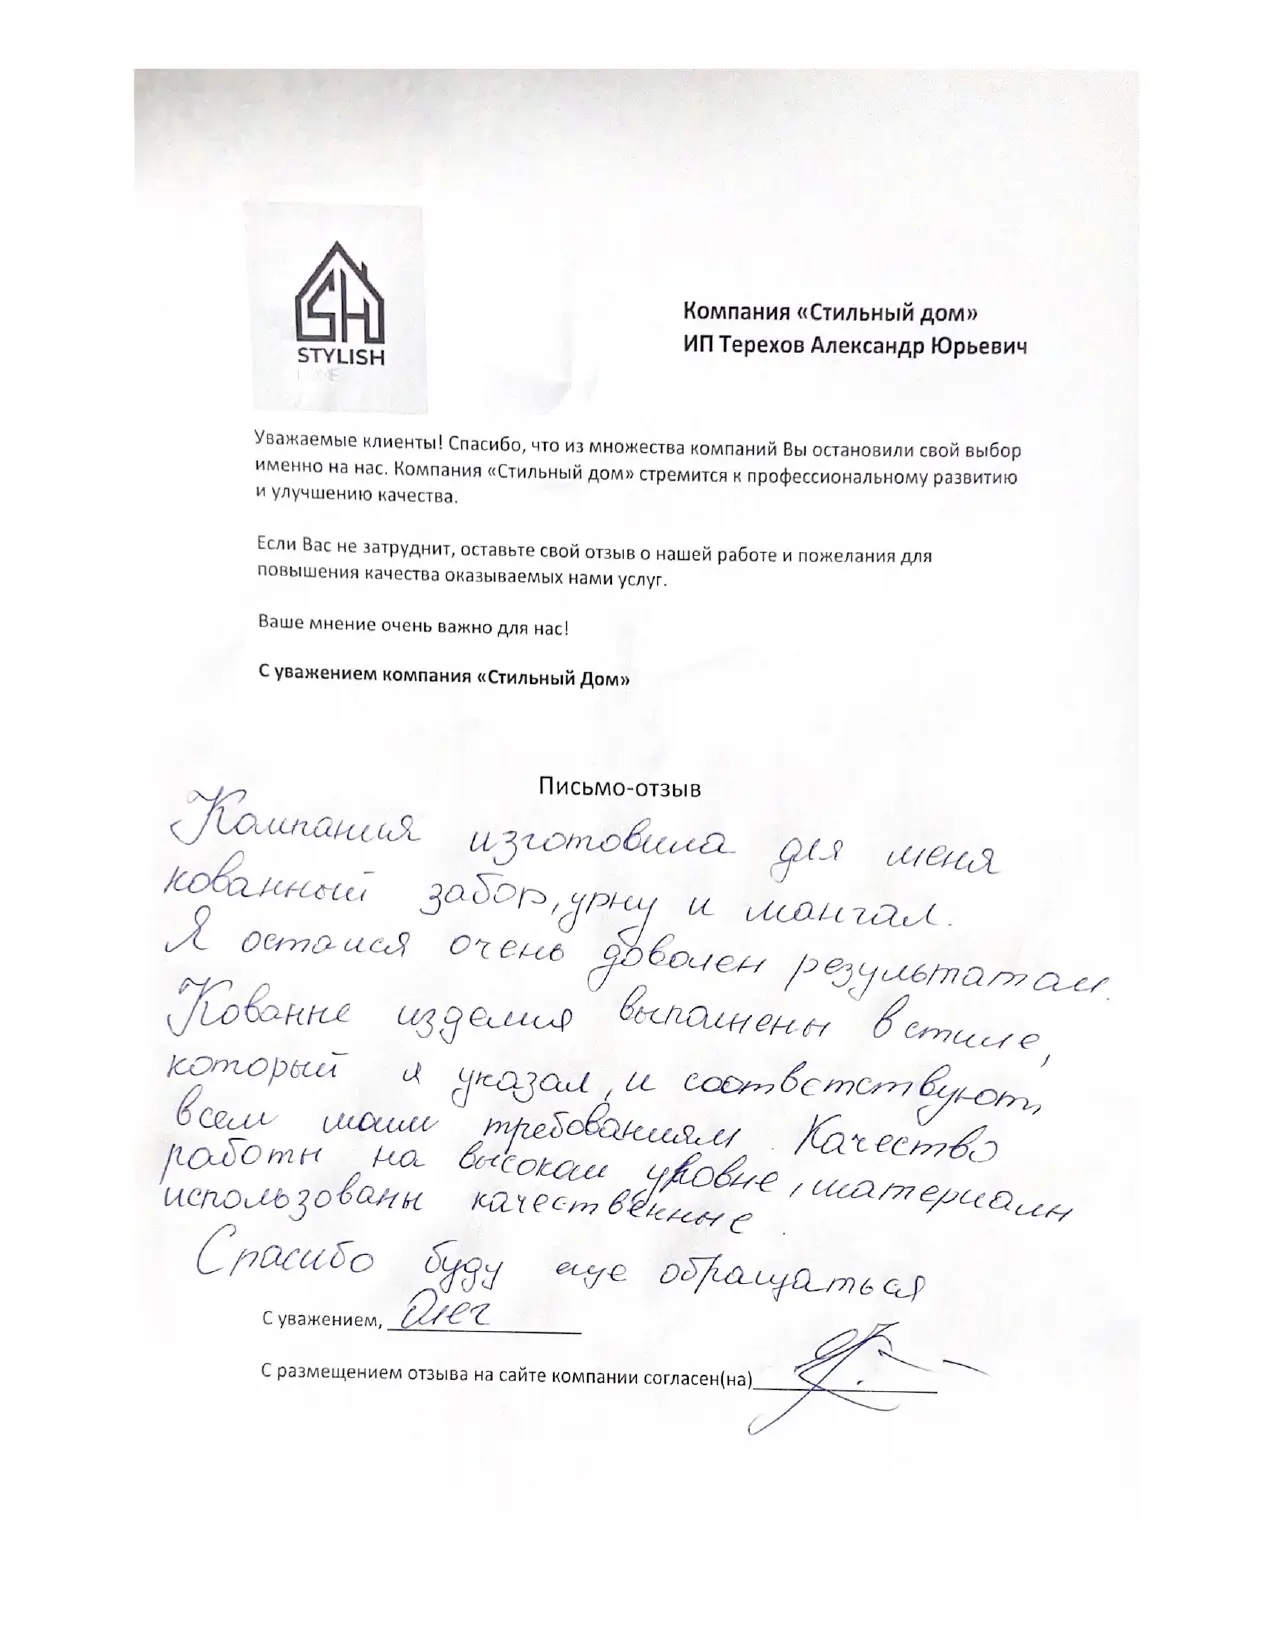 SH
STYLISH
HOME
Компания «Стильный дом»
ИП Терехов Александр Юрьевич
Уважаемые клиенты! Спасибо, что из множества компаний Вы остановили свой выбор
именно на нас. Компания «Стильный дом» стремится к профессиональному развитию
и улучшению качества.
Если Вас не затруднит, оставьте свой отзыв о нашей работе и пожелания для
повышения качества оказываемых нами услуг.
Ваше мнение очень важно для нас!
С уважением компания «Стильный Дом»
Письмо-отзыв
Компания изготовила для меня
кованный забор, урну и мангал.
Я остался очень доволен результатам.
Кованне изделия выполнены в стиле,
который я указал, и соответствуют
всем моим требованиям. Качество
работы на высоком уровне, материалы
использованы качественные.
Спасибо буду еще обращаться
С уважением, Олег
С размещением отзыва на сайте компании согласен(на)